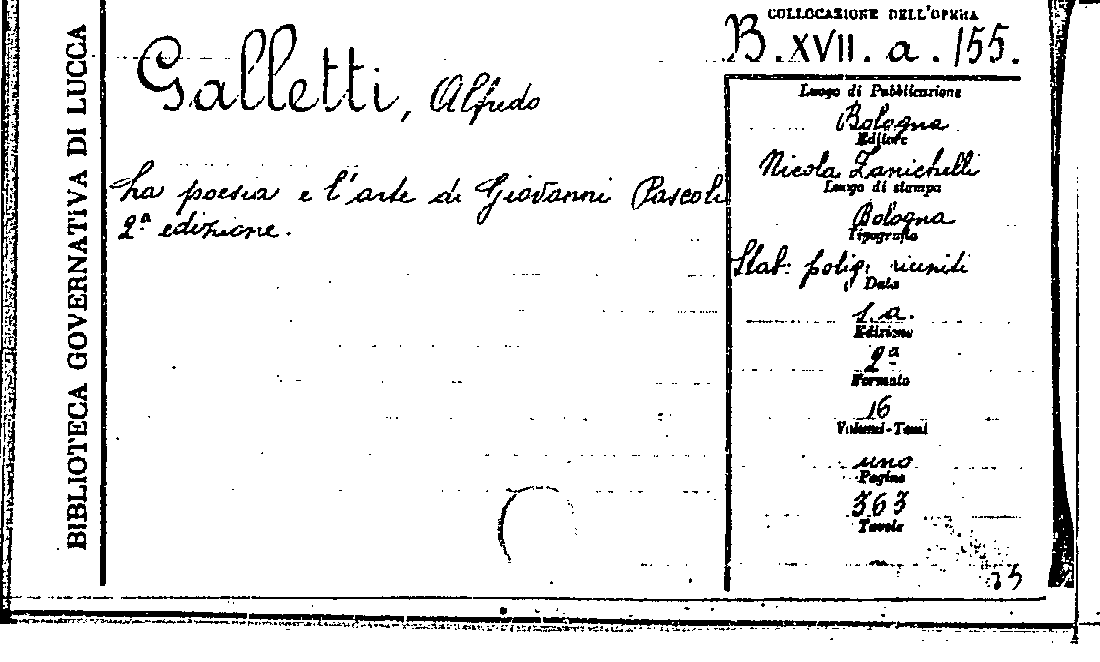 BIBLIOTECA GOVERNATIVA DI LUCCA
Galletti, Alfredo
La poesia e l'arte di Giovanni Pascoli
2ª edizione.
COLLOCAZIONE DELL'OPERA
B. XVII. a. 155.
Luogo di Pubblicazione
Bologna
Editore
Nicola Zanichelli
Luogo di stampa
Bologna
Tipografia
Stab: polig: riuniti
Data
s.a.
Edizione
2ª
Formato
16
Volumi-Tomi
uno
Pagine
363
Tavole